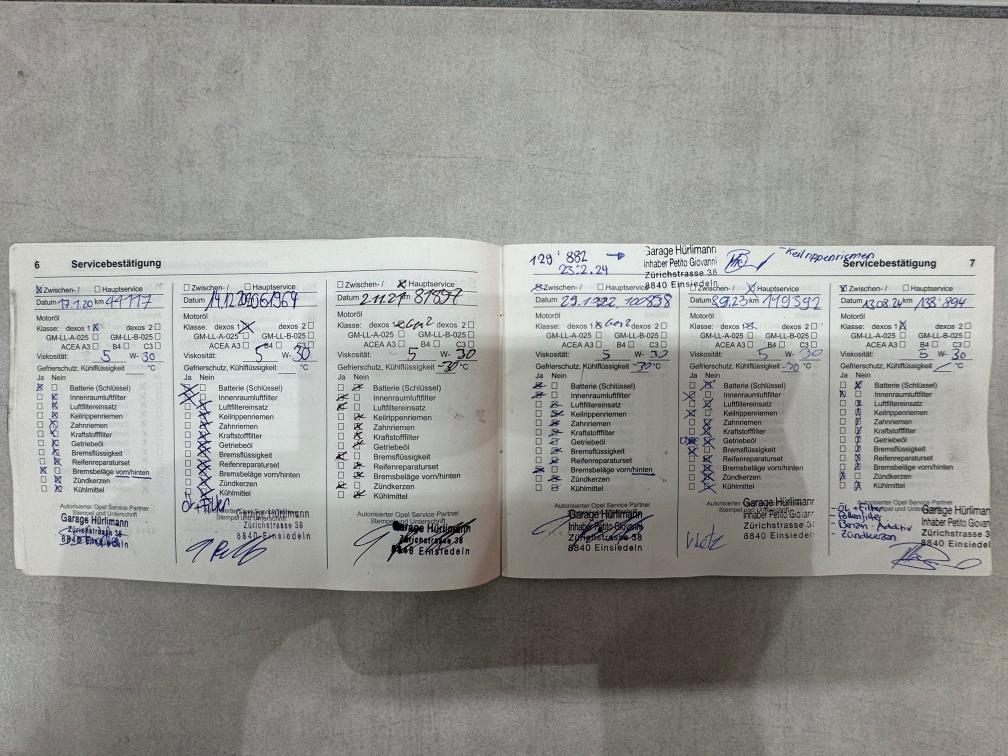 6 Servicebestätigung
Zwischen-/ Hauptservice
Datum 17.1.20 km 44117
Motoröl
Klasse: dexos 1 dexos 2
GM-LL-A-025 GM-LL-B-025
ACEA A3 B4 C3
Viskosität: 5 W- 30
Gefrierschutz, Kühlflüssigkeit °C
Ja Nein
Batterie (Schlüssel)
Innenraumluftfilter
Luftfiltereinsatz
Keilrippenriemen
Zahnriemen
Kraftstofffilter
Getriebeöl
Bremsflüssigkeit
Reifenreparaturset
Bremsbeläge vorn/hinten
Zündkerzen
Kühlmittel
Autorisierter Opel Service Partner
Stempel und Unterschrift
Garage Hürlimann
Zürichstrasse 38
8840 Einsiedeln
Zwischen-/ Hauptservice
Datum 14.12.20
Klasse: dexos 1 dexos 2
GM-LL-A-025 GM-LL-B-025
ACEA A3 B4 C3
Viskosität: 5 W- 30
Gefrierschutz, Kühlflüssigkeit °C
Ja Nein
Batterie (Schlüssel)
Innenraumluftfilter
Luftfiltereinsatz
Keilrippenriemen
Zahnriemen
Kraftstofffilter
Getriebeöl
Bremsflüssigkeit
Reifenreparaturset
Bremsbeläge vorn/hinten
Zündkerzen
Kühlmittel
Öl + Filter
Garage Hürlimann
Zürichstrasse 38
8840 Einsiedeln
Zwischen-/ Hauptservice
Datum 2.11.21 81857
Motoröl
Klasse: dexos 1 Gen2 dexos 2
GM-LL-A-025 GM-LL-B-025
ACEA A3 B4 C3
Viskosität: 5 W- 30
Gefrierschutz, Kühlflüssigkeit -30 °C
Ja Nein
Batterie (Schlüssel)
Innenraumluftfilter
Luftfiltereinsatz
Keilrippenriemen
Zahnriemen
Kraftstofffilter
Getriebeöl
Bremsflüssigkeit
Reifenreparaturset
Bremsbeläge vorn/hinten
Zündkerzen
Kühlmittel
Autorisierter Opel Service Partner
Stempel und Unterschrift
Garage Hürlimann
Zürichstrasse 38
8840 Einsiedeln
129'882 →
23.2.24
Garage Hürlimann
Inhaber Petito Giovanni
Zürichstrasse 38
8840 Einsiedeln
-Keilrippenriemen
Servicebestätigung 7
Zwischen-/ Hauptservice
Datum
Motoröl
Klasse: dexos 1 Gen2 dexos 2
GM-LL-A-025 GM-LL-B-025
ACEA A3 B4 C3
Viskosität: 5 W- 30
Gefrierschutz, Kühlflüssigkeit -30 °C
Ja Nein
Batterie (Schlüssel)
Innenraumluftfilter
Luftfiltereinsatz
Keilrippenriemen
Zahnriemen
Kraftstofffilter
Getriebeöl
Bremsflüssigkeit
Reifenreparaturset
Bremsbeläge vorn/hinten
Zündkerzen
Kühlmittel
Garage Hürlimann
Inhaber Petito Giovanni
Zürichstrasse 38
8840 Einsiedeln
Zwischen-/ Hauptservice
Datum km 119392
Motoröl
Klasse: dexos 1 dexos 2
GM-LL-A-025 GM-LL-B-025
ACEA A3 B4 C3
Viskosität: 5 W- 30
Gefrierschutz, Kühlflüssigkeit -30 °C
Ja Nein
Batterie (Schlüssel)
Innenraumluftfilter
Luftfiltereinsatz
Keilrippenriemen
Zahnriemen
Kraftstofffilter
Getriebeöl
Bremsflüssigkeit
Reifenreparaturset
Bremsbeläge vorn/hinten
Zündkerzen
Kühlmittel
Autorisierter
Garage Hürlimann
Inhaber Petito Giovanni
Zürichstrasse 38
8840 Einsiedeln
Zwischen-/ Hauptservice
Datum 13.08.24 km 138'894
Motoröl
Klasse: dexos 1 dexos 2
GM-LL-A-025 GM-LL-B-025
ACEA A3 B4 C3
Viskosität: 5 W- 30
Gefrierschutz, Kühlflüssigkeit °C
Ja Nein
Batterie (Schlüssel)
Innenraumluftfilter
Luftfiltereinsatz
Keilrippenriemen
Zahnriemen
Kraftstofffilter
Getriebeöl
Bremsflüssigkeit
Reifenreparaturset
Bremsbeläge vorn/hinten
Zündkerzen
Kühlmittel
Autorisierter Opel Service Partner
- Öl + Filter
- Pollenfilter
- Benzin Additiv
- Zündkerzen
Garage Hürlimann
Inhaber Petito Giovanni
Zürichstrasse 38
8840 Einsiedeln